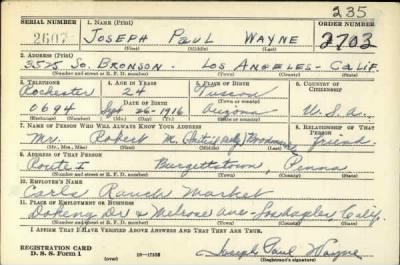 235
SERIAL NUMBER 1. NAME (Print) ORDER NUMBER
2607 JOSEPH PAUL WAYNE 2703
(First) (Middle) (Last)
2. ADDRESS (Print)
3525 SO. BRONSON - LOS ANGELES - CALIF.
(Number and street or R. F. D. number) (Town) (County) (State)
3. TELEPHONE 4. AGE IN YEARS 5. PLACE OF BIRTH 6. COUNTRY OF CITIZENSHIP
Rochester 24 Tuscon
DATE OF BIRTH (Town or county)
0694 Sept 26-1916 Arizona U.S.A.
(Exchange) (Number) (Mo.) (Day) (Yr.) (State or country)
7. NAME OF PERSON WHO WILL ALWAYS KNOW YOUR ADDRESS 8. RELATIONSHIP OF THAT PERSON
Mr Robert M. friend
(Mr., Mrs., Miss) (First) (Middle) (Last)
9. ADDRESS OF THAT PERSON
Route 1 Burgettstown, Penna
(Number and street or R. F. D. number) (Town) (County) (State)
10. EMPLOYER'S NAME
Carls Ranch Market
11. PLACE OF EMPLOYMENT OR BUSINESS
Doheny Dr & Melrose Ave - Los Angeles Calif.
(Number and street or R. F. D. number) (Town) (County) (State)
I AFFIRM THAT I HAVE VERIFIED ABOVE ANSWERS AND THAT THEY ARE TRUE.
REGISTRATION CARD
D. S. S. Form 1 (over) Joseph Paul Wayne
(Registrant's signature)